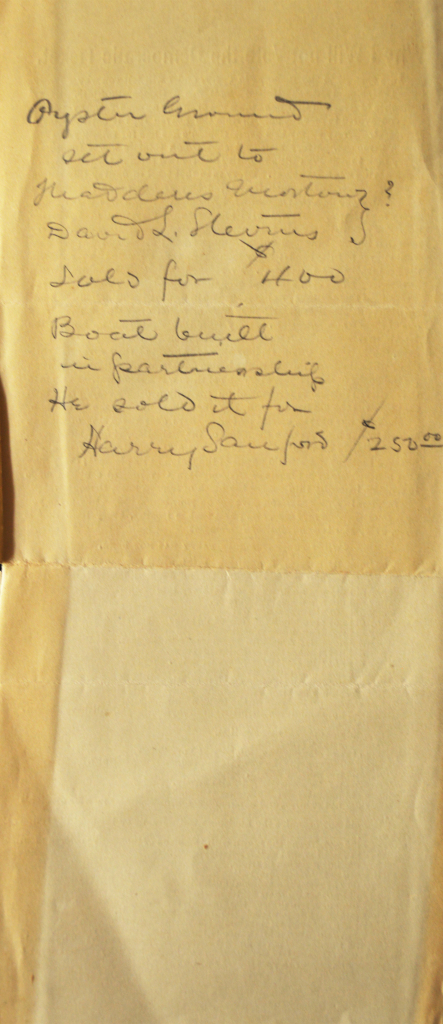 Oyster Ground
set out to
David L. Stevens
Sold for $400
Boat built
in partnership
He sold it for
Harry Sanford $250.00